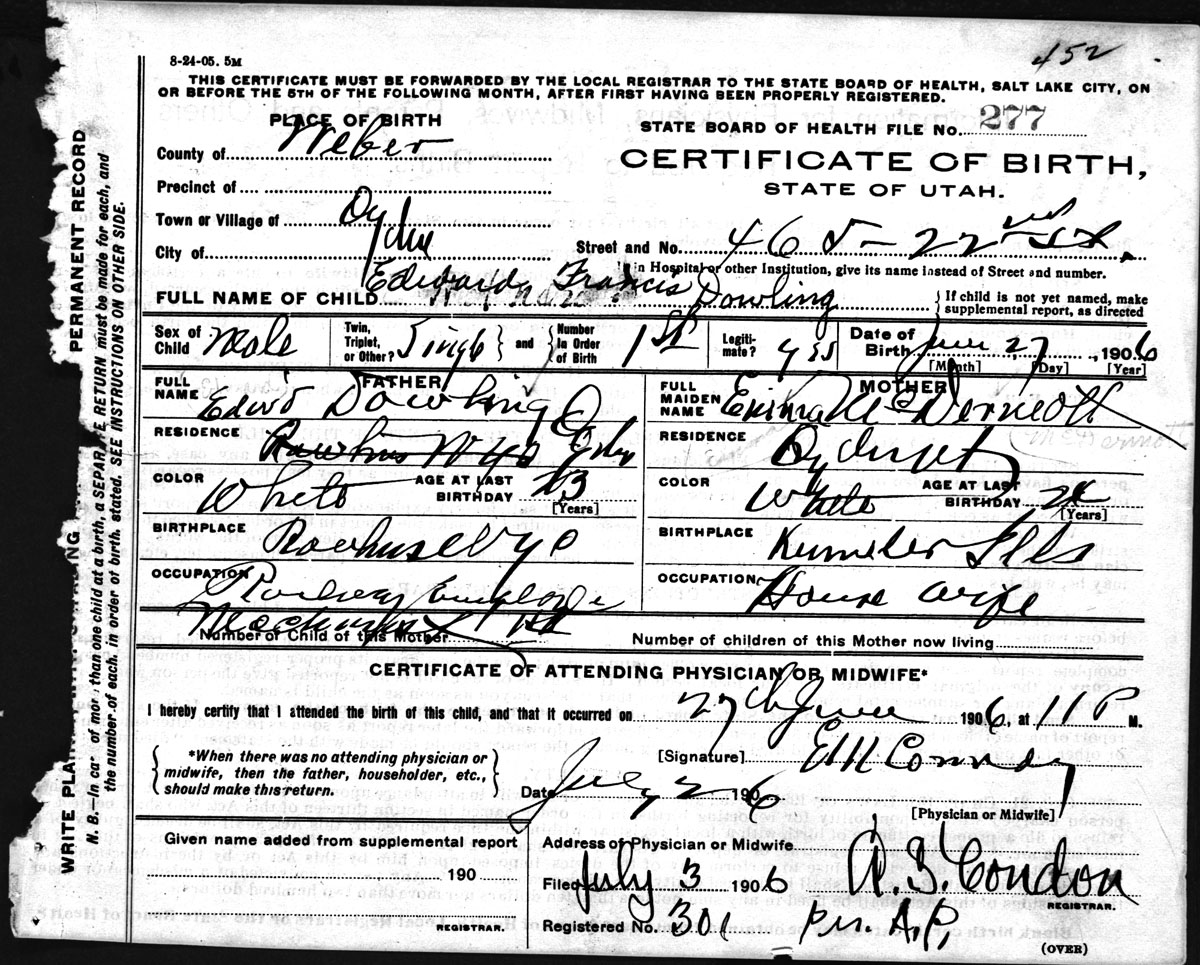 452
8-24-05. 5M
THIS CERTIFICATE MUST BE FORWARDED BY THE LOCAL REGISTRAR TO THE STATE BOARD OF HEALTH, SALT LAKE CITY, ON
OR BEFORE THE 5TH OF THE FOLLOWING MONTH, AFTER FIRST HAVING BEEN PROPERLY REGISTERED.
PLACE OF BIRTH
STATE BOARD OF HEALTH FILE No. 277
County of Weber
CERTIFICATE OF BIRTH,
STATE OF UTAH.
Precinct of
Town or Village of
City of Ogden
Street and No. 465-22nd St.
in Hospital or other Institution, give its name instead of Street and number.
FULL NAME OF CHILD Edward Francis Dowling
If child is not yet named, make supplemental report, as directed
Sex of Child Male
Twin, Triplet, or Other? Single and Number In Order of Birth 1st
Legitimate? yes
Date of Birth June 27, 1906
[Month] [Day] [Year]
FATHER
FULL NAME Edw'd Dowling
RESIDENCE Rawlins Wyo Ogden
COLOR White AGE AT LAST BIRTHDAY 23 [Years]
BIRTHPLACE
OCCUPATION Railway Employe
Machinist
MOTHER
FULL MAIDEN NAME Emma McDermott
RESIDENCE
COLOR White AGE AT LAST BIRTHDAY [Years]
BIRTHPLACE
OCCUPATION House wife
Number of Child of this Mother 1st
Number of children of this Mother now living
CERTIFICATE OF ATTENDING PHYSICIAN OR MIDWIFE*
I hereby certify that I attended the birth of this child, and that it occurred on 27th June 1906, at 11 P M.
*When there was no attending physician or midwife, then the father, householder, etc., should make this return.
[Signature]
Date July 2 1906
[Physician or Midwife]
Given name added from supplemental report
190
REGISTRAR.
Address of Physician or Midwife
Filed July 3 1906 A. S. Condon
REGISTRAR.
Registered No. 301 Per. A.P.
(OVER)
PERMANENT RECORD
N. B.—In case of more than one child at a birth, a SEPARATE RETURN must be made for each, and
the number of each, in order of birth, stated. SEE INSTRUCTIONS ON OTHER SIDE.